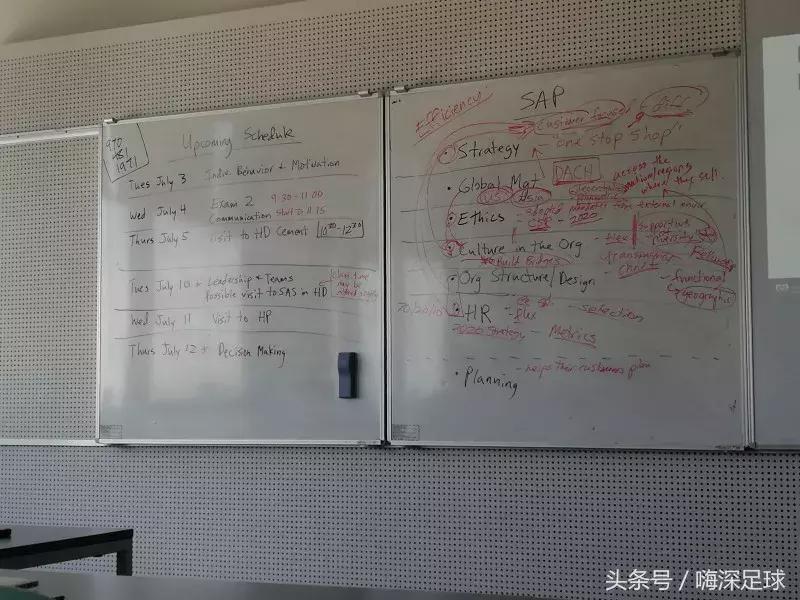 Upcoming Schedule
1971
Tues July 3 Indiv. Behavior + Motivation
Wed July 4 Exam 2 9:30-11:00
Communication start @ 11:15
Thurs July 5 Visit to HD Cement 10³⁰-12³⁰
Tues July 10 + Leadership + Teams
Possible visit to SAS in HD
class time
may be
Wed July 11 Visit to HP
Thurs July 12 + Decision Making
Efficiency
SAP
Customer focused
• Strategy "one stop shop"
• Global Mgt DACH across the
US Asia where they sell.
• Ethics - adopted from external envir
- 2020
• Culture in the Org - flex supportive
Diversity
Build Bridges transparency
• Org Structure/Design - functional
geographic
70/20/10 • HR flex - selection
2020 Strategy - Metrics
• Planning - helps their customers plan
头条号 / 嗨深足球